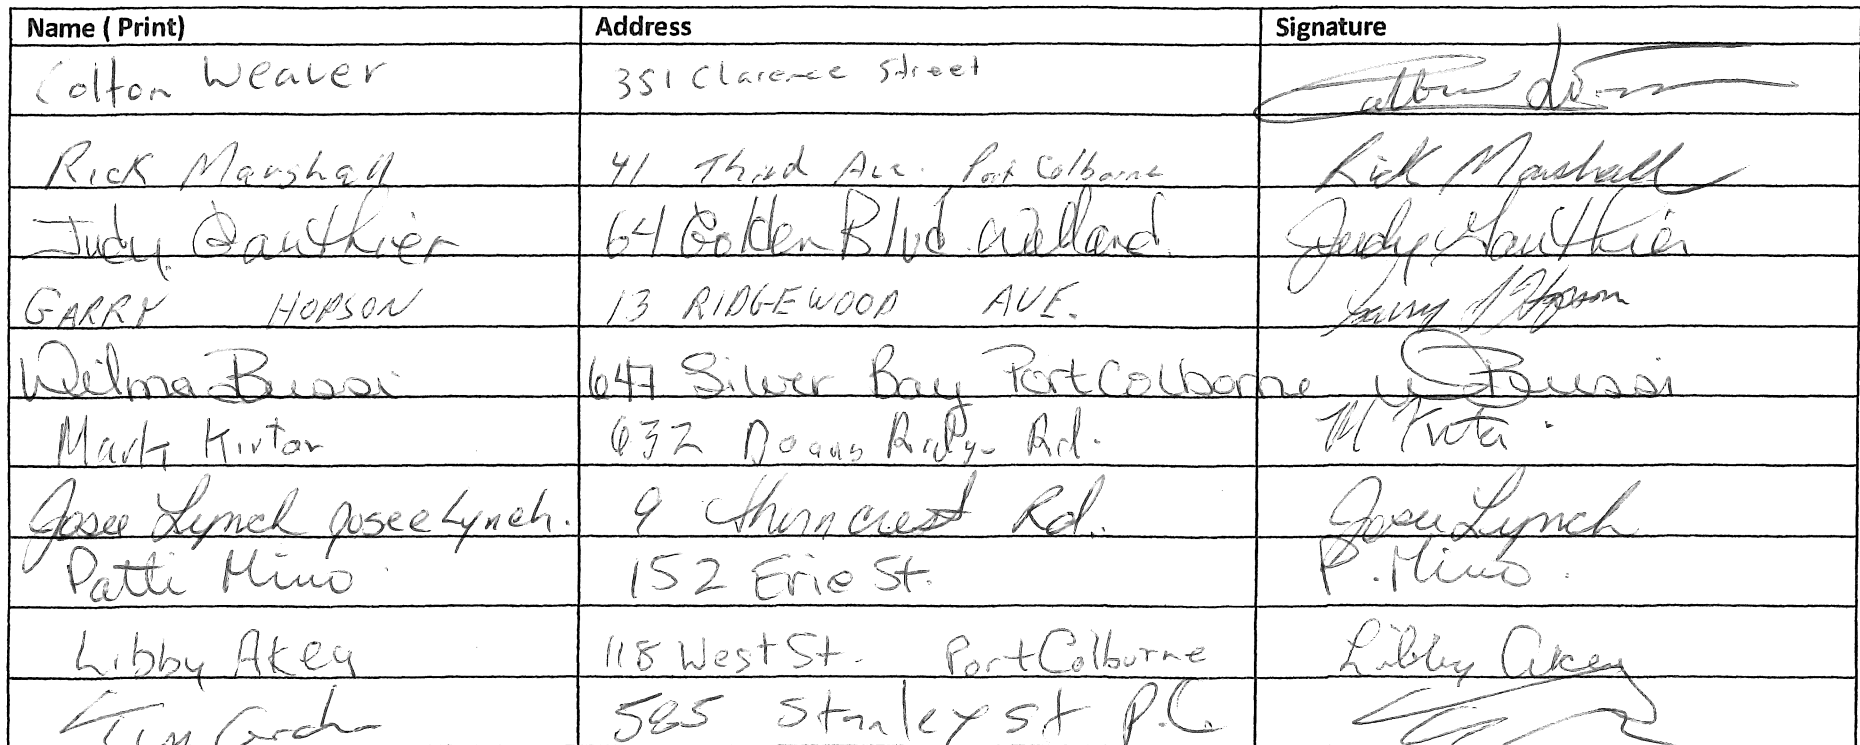 Name ( Print) Address Signature
Colton Weaver 351 Clarence Street
Rick Marshall 41 Third Ave. Port Colborne Rick Marshall
Judy Gauthier 64 Golden Blvd Welland Judy Gauthier
GARRY HOPSON 13 RIDGEWOOD AVE. Garry Hopson
Wilma Bussi 647 Silver Bay Port Colborne W Bussi
Mark Kirton 632 Doans Ridge Rd. M
Josee Lynch Josee Lynch. 9 Thorncrest Rd. Josee Lynch
Patti Mino 152 Erie St. P. Mino.
Libby Akey 118 West St. Port Colburne Libby Akey
Tim 585 Stanley St P.C.